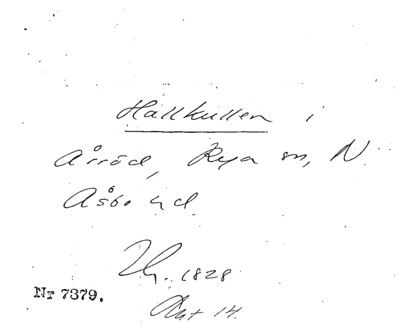 Hallkullen i
Årröd, Rya sn, N.
Åsbo hd.
1828
Nr 7379.
Akt 14.